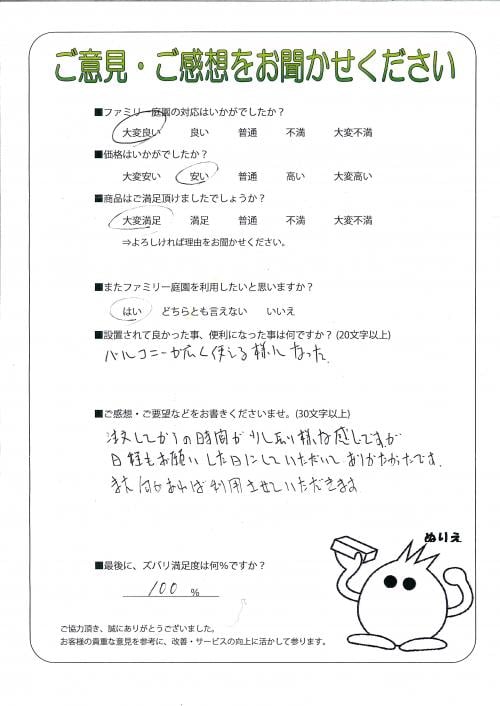 ご意見・ご感想をお聞かせください
■ファミリー庭園の対応はいかがでしたか？
大変良い 良い 普通 不満 大変不満
■価格はいかがでしたか？
大変安い 安い 普通 高い 大変高い
■商品はご満足頂けましたでしょうか？
大変満足 満足 普通 不満 大変不満
⇒よろしければ理由をお聞かせください。
■またファミリー庭園を利用したいと思いますか？
はい どちらとも言えない いいえ
■設置されて良かった事、便利になった事は何ですか？(20文字以上)
バルコニーが広く使える様になった。
■ご感想・ご要望などをお書きくださいませ。(30文字以上)
注文してからの時間が少し長い様な感じですが
日程もお願いした日にしていただいてありがたかったです。
また何かあれば利用させていただきます
ぬりえ
■最後に、ズバリ満足度は何%ですか？
100 %
ご協力頂き、誠にありがとうございました。
お客様の貴重な意見を参考に、改善・サービスの向上に活かして参ります。